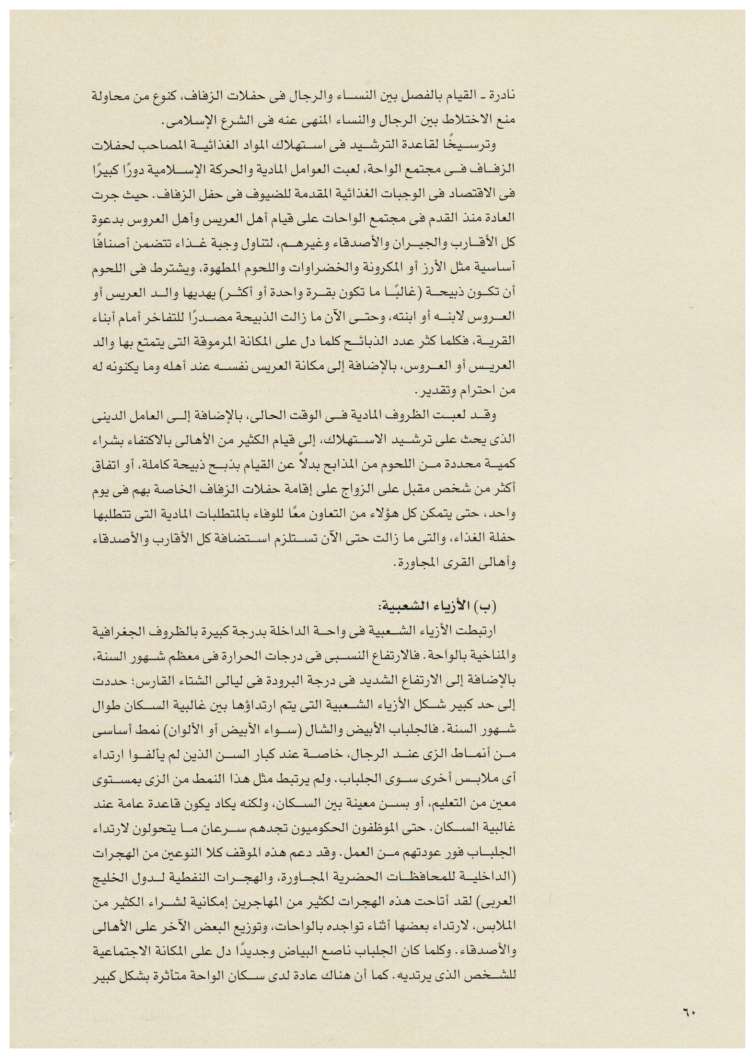 نادرة ـ القيام بالفصل بين النساء والرجال فى حفلات الزفاف، كنوع من محاولة
منع الاختلاط بين الرجال والنساء المنهى عنه فى الشرع الإسلامى.
وترسيخًا لقاعدة الترشيد فى استهلاك المواد الغذائية المصاحب لحفلات
الزفاف فى مجتمع الواحة، لعبت العوامل المادية والحركة الإسلامية دورًا كبيرًا
فى الاقتصاد فى الوجبات الغذائية المقدمة للضيوف فى حفل الزفاف. حيث جرت
العادة منذ القدم فى مجتمع الواحات على قيام أهل العريس وأهل العروس بدعوة
كل الأقارب والجيران والأصدقاء وغيرهم، لتناول وجبة غداء تتضمن أصنافًا
أساسية مثل الأرز أو المكرونة والخضراوات واللحوم المطهوة، ويشترط فى اللحوم
أن تكون ذبيحة (غالبًا ما تكون بقرة واحدة أو أكثر) يهديها والد العريس أو
العروس لابنه أو ابنته، وحتى الآن ما زالت الذبيحة مصدرًا للتفاخر أمام أبناء
القرية، فكلما كثر عدد الذبائح كلما دل على المكانة المرموقة التى يتمتع بها والد
العريس أو العروس، بالإضافة إلى مكانة العريس نفسه عند أهله وما يكنونه له
من احترام وتقدير.
وقد لعبت الظروف المادية فى الوقت الحالى، بالإضافة إلى العامل الدينى
الذى يحث على ترشيد الاستهلاك، إلى قيام الكثير من الأهالى بالاكتفاء بشراء
كمية محددة من اللحوم من المذابح بدلاً عن القيام بذبح ذبيحة كاملة، أو اتفاق
أكثر من شخص مقبل على الزواج على إقامة حفلات الزفاف الخاصة بهم فى يوم
واحد، حتى يتمكن كل هؤلاء من التعاون معًا للوفاء بالمتطلبات المادية التى تتطلبها
حفلة الغذاء، والتى ما زالت حتى الآن تستلزم استضافة كل الأقارب والأصدقاء
وأهالى القرى المجاورة.
(ب) الأزياء الشعبية:
ارتبطت الأزياء الشعبية فى واحة الداخلة بدرجة كبيرة بالظروف الجغرافية
والمناخية بالواحة. فالارتفاع النسبى فى درجات الحرارة فى معظم شهور السنة،
بالإضافة إلى الارتفاع الشديد فى درجة البرودة فى ليالى الشتاء القارس؛ حددت
إلى حد كبير شكل الأزياء الشعبية التى يتم ارتداؤها بين غالبية السكان طوال
شهور السنة. فالجلباب الأبيض والشال (سواء الأبيض أو الألوان) نمط أساسى
من أنماط الزى عند الرجال، خاصة عند كبار السن الذين لم يألفوا ارتداء
أى ملابس أخرى سوى الجلباب. ولم يرتبط مثل هذا النمط من الزى بمستوى
معين من التعليم، أو بسن معينة بين السكان، ولكنه يكاد يكون قاعدة عامة عند
غالبية السكان. حتى الموظفون الحكوميون تجدهم سرعان ما يتحولون لارتداء
الجلباب فور عودتهم من العمل. وقد دعم هذه الموقف كلا النوعين من الهجرات
(الداخلية للمحافظات الحضرية المجاورة، والهجرات النفطية لدول الخليج
العربى) لقد أتاحت هذه الهجرات لكثير من المهاجرين إمكانية لشراء الكثير من
الملابس، لارتداء بعضها أثناء تواجده بالواحات، وتوزيع البعض الآخر على الأهالى
والأصدقاء. وكلما كان الجلباب ناصع البياض وجديدًا دل على المكانة الاجتماعية
للشخص الذى يرتديه. كما أن هناك عادة لدى سكان الواحة متأثرة بشكل كبير
٦٠